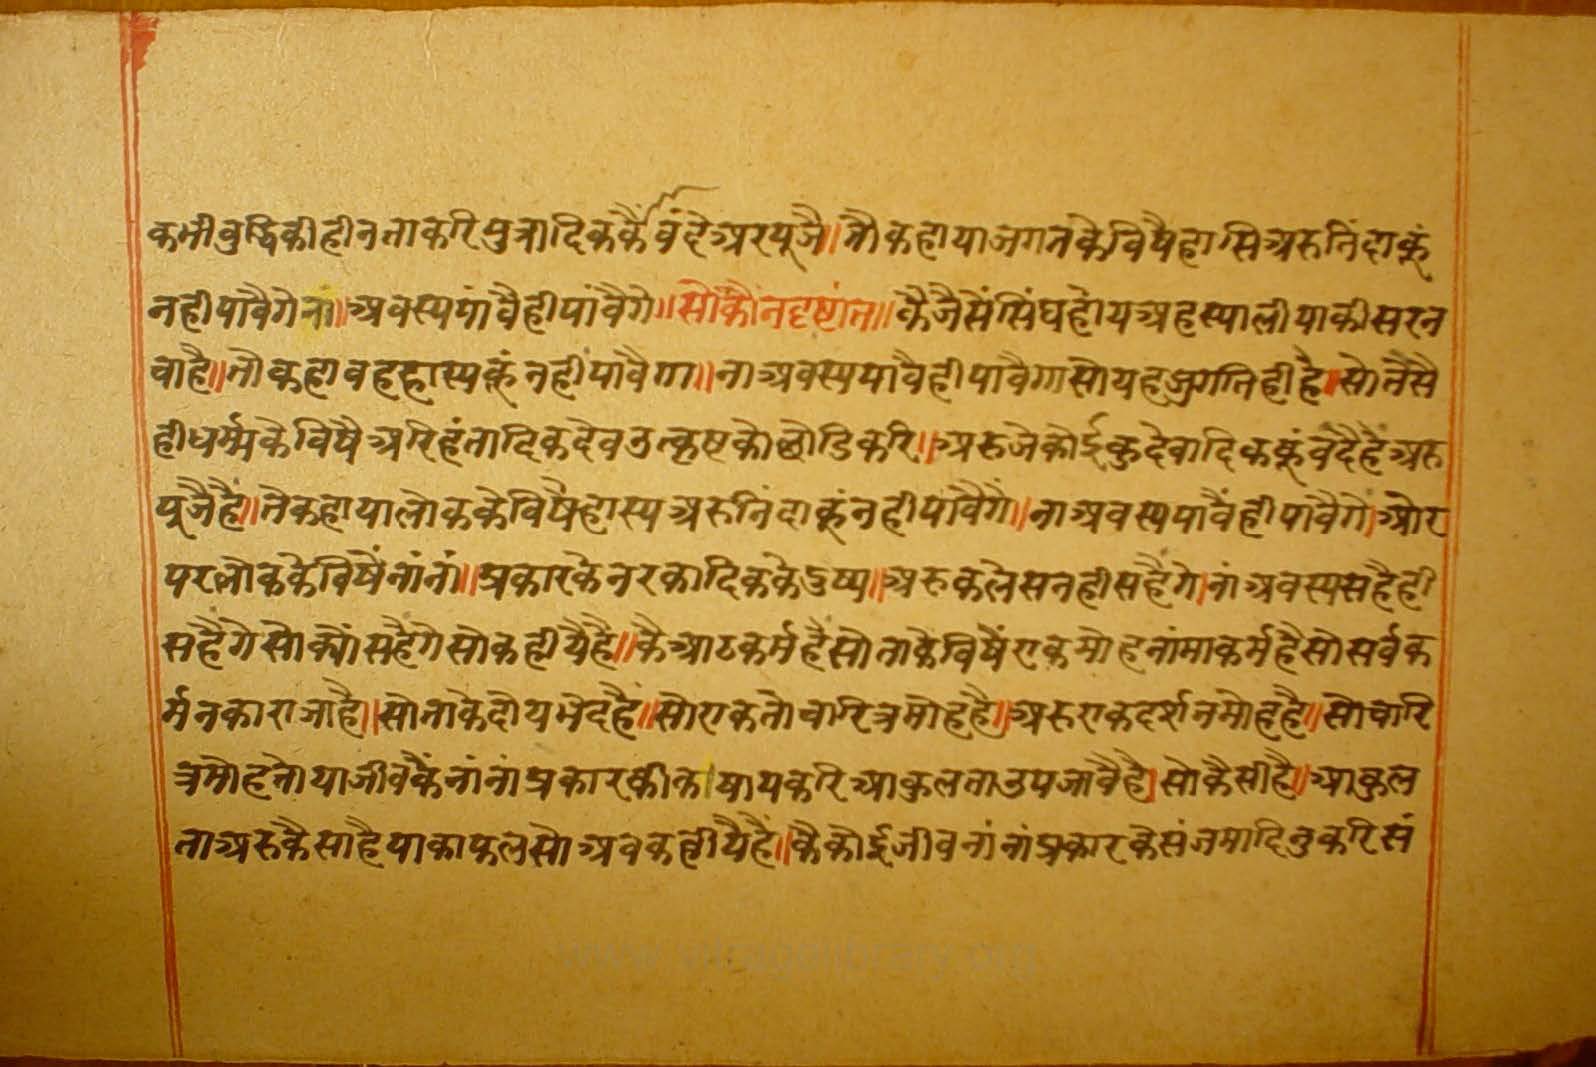 कभी वुद्धिकी हीनताकरि पुत्रादिककैं वंदे अर पूजै॥ तौ कहा या जगतके विषै हासि अरु निंदाकूं
नही पावैगे तां॥ अवस्य पांवै ही पांवैगे॥ सो कौंन दृष्टांत॥ कै जैसें सिंघ होय अर स्याली याकी सरन
वाहै॥ तौ कहा वह हास्यकूं नहीं पावैगा॥ ना अवस्य पावै ही पावैगा सो यह जुगति ही है॥ सो तैसै
ही धर्म्मके विषै अरिहंतादिक देव उत्कृष्टको छोडि करि॥ अरु जे कोई कुदेवादिककूं वंदै हैं अरु
पूजै हैं॥ ते कहा या लोकके विषै हास्य अरु निंदाकूं नही पावैगें॥ ना अवस्य पावैं ही पावैगें॥ ओर
परलोकके विषैं नांनां॥ प्रकारके नरकादिकके दुष्य॥ अरु कलेस नही सहैंगे। नां अवस्य सहै ही
सहैंगे सो क्यों सहैंगे सो कहीयै है॥ कै आठ कर्म हैं सो ताके विषैं एक मोह नांमा कर्म है सो सर्व क
र्मनका राजा है॥ सो ताके दोय भेद हैं॥ सो एक तो चारित्रमोह है॥ अरु एक दर्शनमोह है॥ सो चारि
त्रमोह तो या जीवकैं नांनां प्रकारकी कषाय करि आकुलता उपजावै है॥ सो कैसी है॥ आकुल
ता अरु कैसा है याका फल सो अव कहीयै हैं॥ कै कोई जीव नांनां प्रकारके संजमादितु करि सं
www.vitragalibrary.org